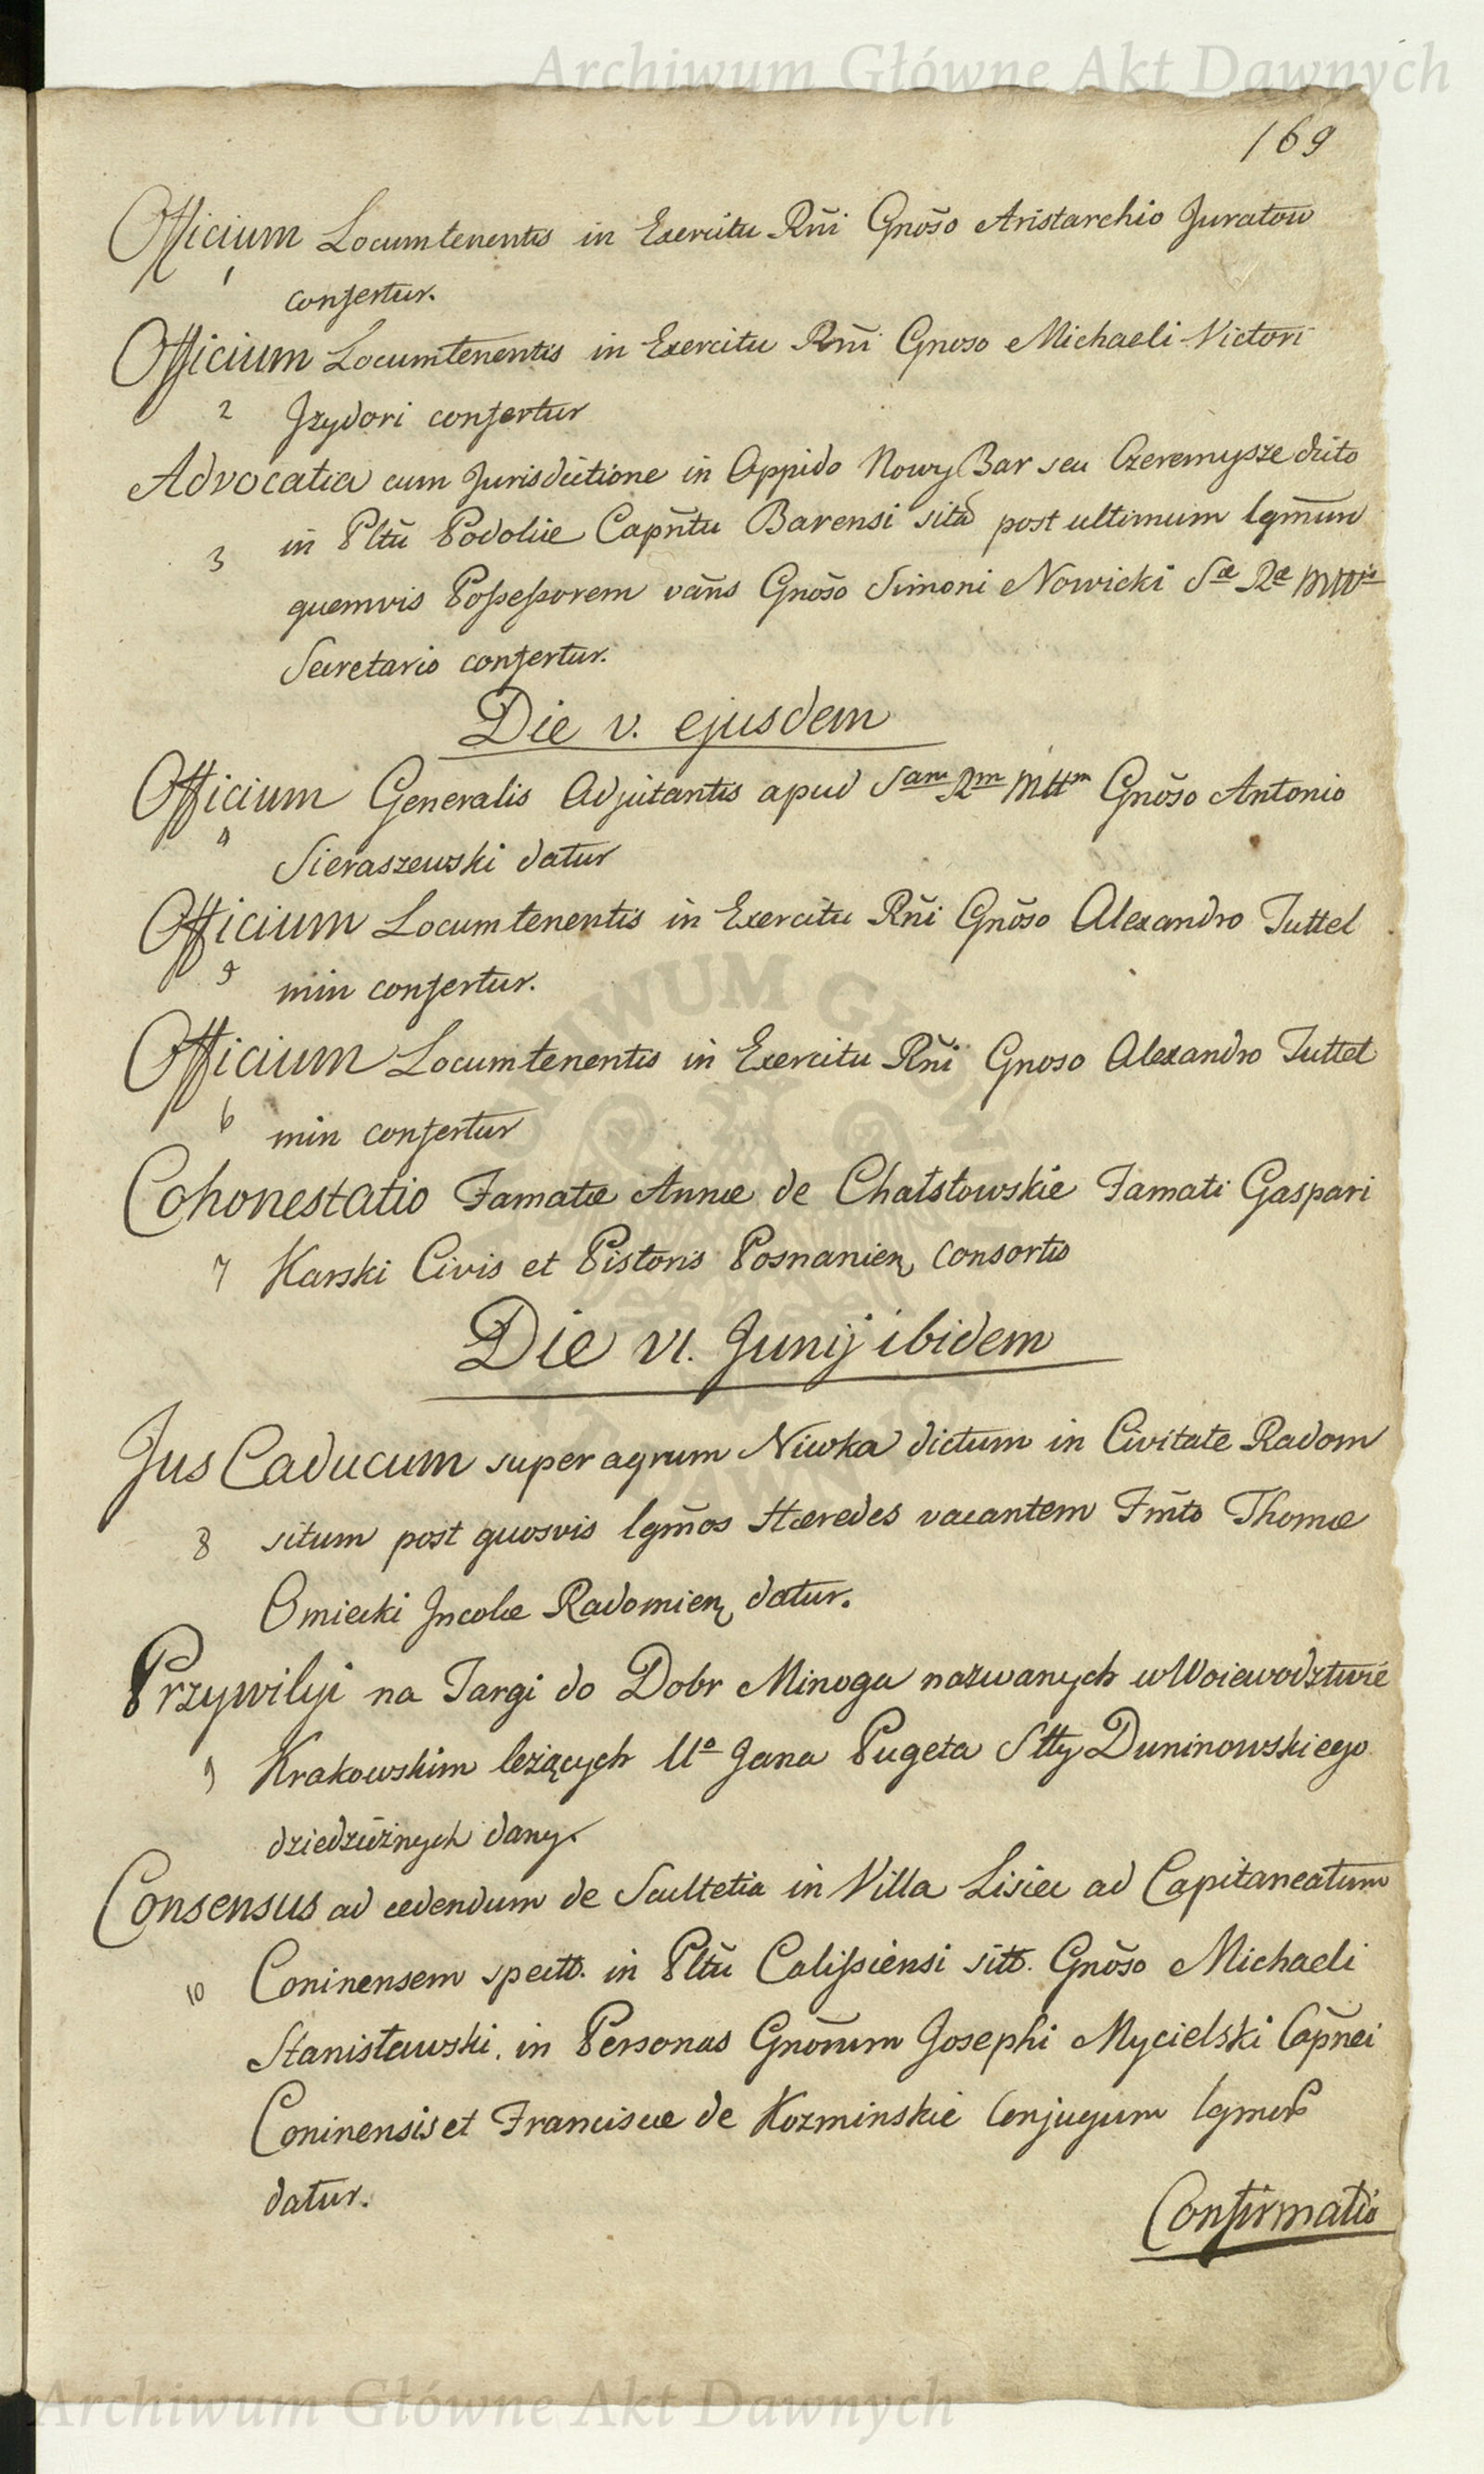 Archiwum Główne Akt Dawnych
169
Officium Locumtenentis in Exercitu Rñi Gnõso Aristarchio Juratow
1
confertur.
Officium Locumtenentis in Exercitu Rñi Gnoso Michaeli Victori
2 Jzydori confertur
Advocatia cum Jurisdictione in Oppido Nowy Bar seu Czeremysze dito
3 in Pltũ Podoliæ Capñtu Barensi sita post ultimum lgm̃um
quemvis Possessorem vãns Gnõso Simoni Nowicki Sæ Ræ Mttis
Secretario confertur.
Die v. ejusdem
Officium Generalis Adjutantis apud Sam Rm Mttm Gnõso Antonio
4
Sieraszewski datur
Officium Locumtenentis in Exercitu Rñi Gnõso Alexandro Tuttel
5 min confertur.
Officium Locumtenentis in Exercitu Rñi Gnoso Alexandro Tuttel
6 min confertur
Cohonestatio Famatæ Annæ de Chatstowskie Famati Gaspari
7 Karski Civis et Pistoris Posnanien Consortis
Die VI. Junij ibidem
Jus Caducum super agrum Niwka dictum in Civitate Radom
8 situm post quosvis lgm̃os Hæredes vacantem Fm̃to Thomæ
Omiecki Jncolæ Radomien datur.
Przywilyi na Targi do Dobr Minoga nazwanych w Woiewodztwie
9 Krakowskim leżących Uo Jana Pugeta Stty Duninowskiego
dziedzicznych dany.
Consensus ad cedendum de Scultetia in Villa Lisiec ad Capitaneatum
10 Coninensem spectt. in Pltũ Calissiensi sitt. Gnõso Michaeli
Stanisławski. in Personas Gnõrum Josephi Mycielski Cap̃nei
Coninensis et Franciscæ de Kozminskie Conjugum lgmor
datur.
Confirmatio
Archiwum Główne Akt Dawnych